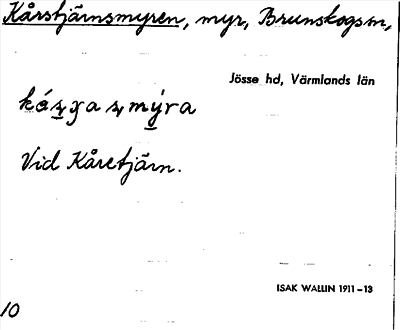 Kårstjärnsmyren, myr, Brunskogsm,
Jösse hd, Värmlands län
Vid Kåretjärn.
ISAK WALLIN 1911-13
10